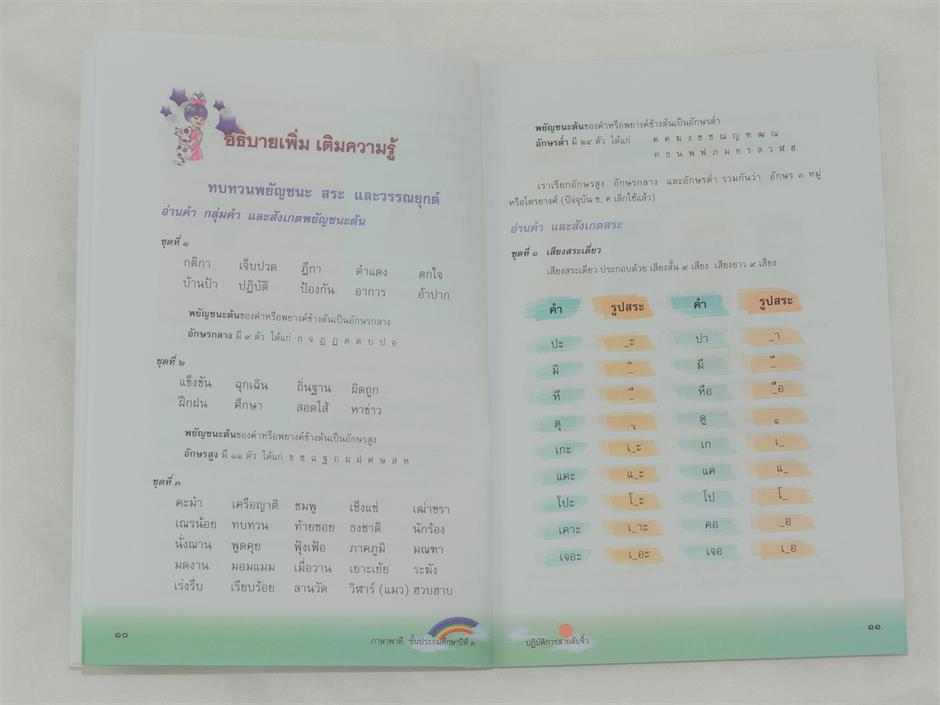 อธิบายเพิ่ม เติมความรู้
ทบทวนพยัญชนะ สระ และวรรณยุกต์
อ่านคำ กลุ่มคำ และสังเกตพยัญชนะต้น
ชุดที่ ๑
กติกา เจ็บปวด ฎีกา ตำแดง ตกใจ
บ้านป้า ปฏิบัติ ป้องกัน อาการ อ้าปาก
พยัญชนะต้นของคำหรือพยางค์ข้างต้นเป็นอักษรกลาง
อักษรกลาง มี ๙ ตัว ได้แก่ ก จ ฎ ฏ ด ต บ ป อ
ชุดที่ ๒
แข็งขัน ฉุกเฉิน ถิ่นฐาน ผิดถูก
ฝึกฝน ศึกษา สอดไส้ หาข่าว
พยัญชนะต้นของคำหรือพยางค์ข้างต้นเป็นอักษรสูง
อักษรสูง มี ๑๑ ตัว ได้แก่ ข ฃ ฉ ฐ ถ ผ ฝ ศ ษ ส ห
ชุดที่ ๓
คะมำ เครือญาติ ชมพู เซ็งแซ่ เฒ่าชรา
เณรน้อย ทบทวน ท้ายซอย ธงชาติ นักร้อง
นั่งฌาน พูดคุย ฟุ้งเฟ้อ ภาคภูมิ มณฑา
มดงาน มอมแมม เมื่อวาน เยาะเย้ย ระฆัง
เร่งรีบ เรียบร้อย ลานวัด วิฬาร์ (แมว) ฮวบฮาบ
๑๐
ภาษาพาที ชั้นประถมศึกษาปีที่ ๓
พยัญชนะต้นของคำหรือพยางค์ข้างต้นเป็นอักษรต่ำ
อักษรต่ำ มี ๒๔ ตัว ได้แก่ ค ฅ ฆ ง ช ซ ฌ ญ ฑ ฒ ณ
ท ธ น พ ฟ ภ ม ย ร ล ว ฬ ฮ
เราเรียกอักษรสูง อักษรกลาง และอักษรต่ำ รวมกันว่า อักษร ๓ หมู่
หรือไตรยางศ์ (ปัจจุบัน ฃ, ฅ เลิกใช้แล้ว)
อ่านคำ และสังเกตสระ
ชุดที่ ๑ เสียงสระเดี่ยว
เสียงสระเดี่ยว ประกอบด้วย เสียงสั้น ๙ เสียง เสียงยาว ๙ เสียง
คำ รูปสระ คำ รูปสระ
ปะ _ะ ปา _า
มิ _ิ มี _ี
หึ _ึ หือ _ือ
ดุ _ุ ดู _ู
เกะ เ_ะ เก เ_
แคะ แ_ะ แค แ_
โปะ โ_ะ โป โ_
เคาะ เ_าะ คอ _อ
เจอะ เ_อะ เจอ เ_อ
ปฏิบัติการสายลับจิ๋ว
๑๑